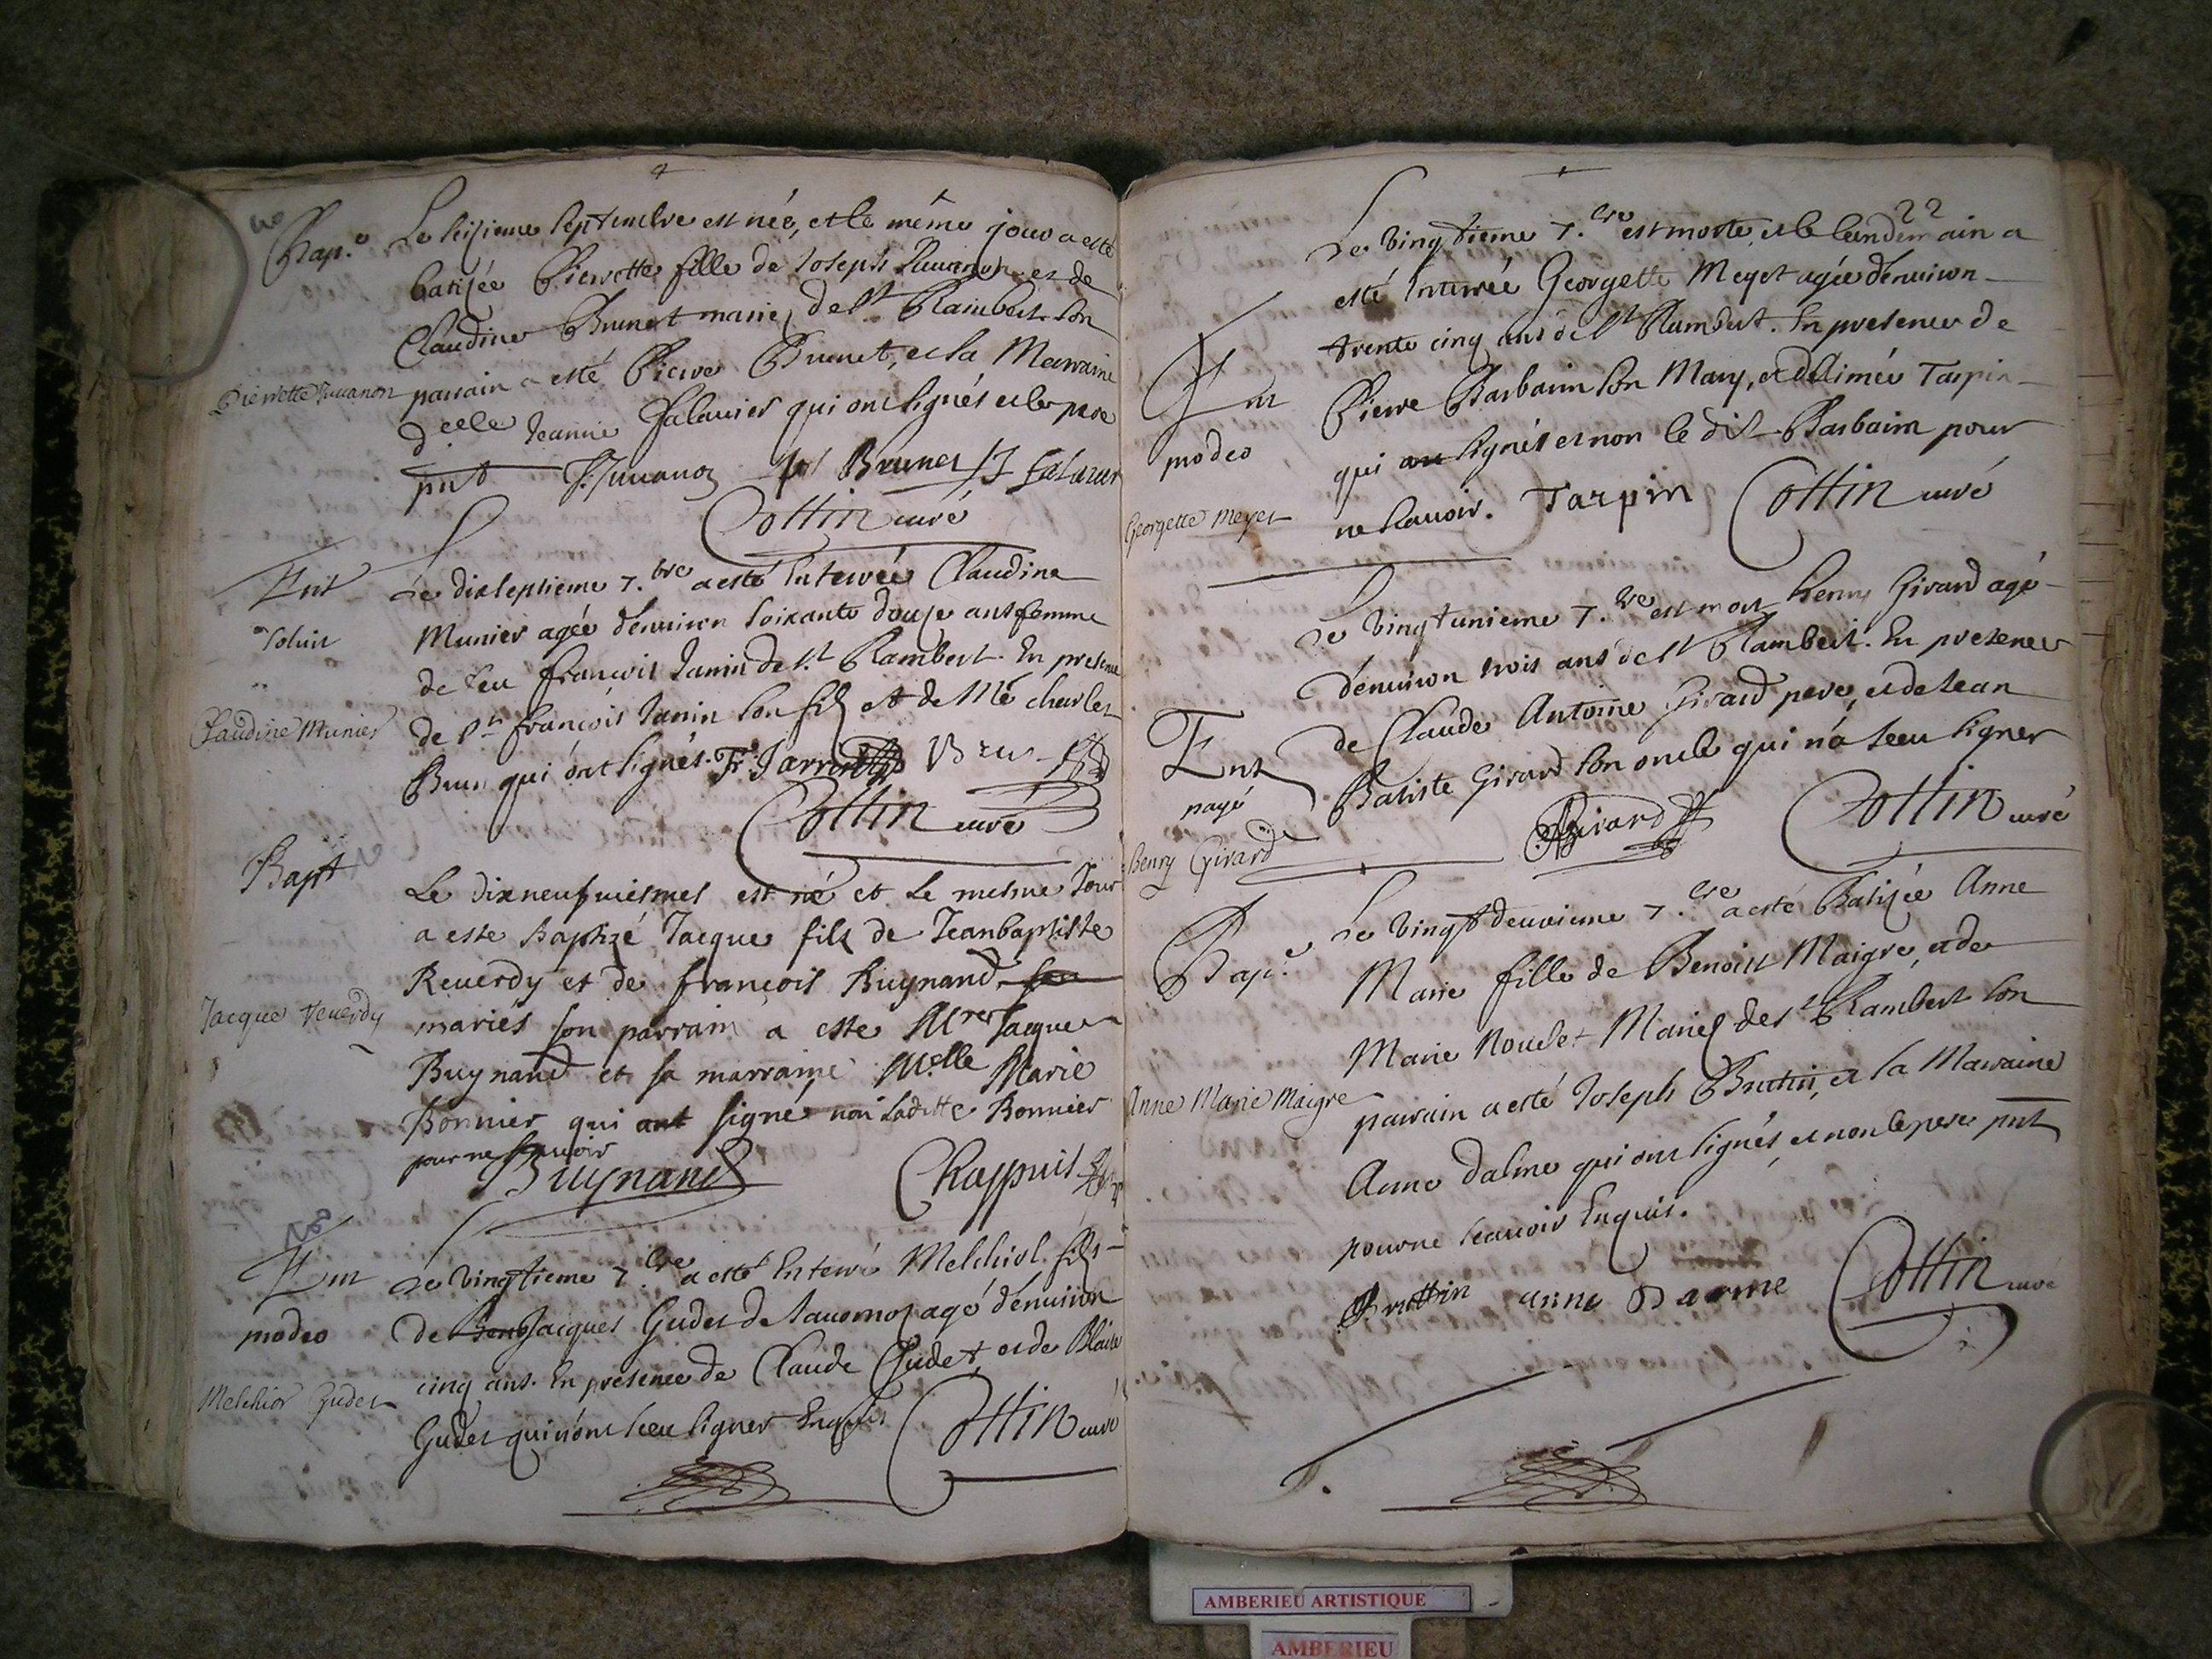 Bap.e
Le seizieme septembre est née, et le même jour a esté
batisée Pierrette fille de Joseph Juuanon et de
Claudine Brunet mariés de St Rambert. Son
Pierrette Juuanon
parrain a esté Pierre Brunet, et la Marraine
delle Jeanne Falauier qui ont signés et le pere
pnt J. Juuanon Brunet
Cottin curé
Ent
Soluit
Claudine Munier
Le dixseptieme 7.bre a esté Enterrée Claudine
Munier agée d'enuiron soixante douze ans femme
de feu françois Janin de St Rambert. En presence
de Sr françois Janin son fils et de Me charles
Brun qui ont signés. Fr. Janin Brun
Cottin curé
Bapt
Jacque Reuerdy
Le dixneufuiesmes est né et le mesme Jour
a este Baptizé Jacque fils de Jeanbaptiste
Reuerdy et de françois Buynand
mariés son parrain a este Mre Jacque
Buynand et sa marraine Melle Marie
Bonnier qui ont signé non laditte Bonnier
pour ne sçauoir
Buynand Chappuis
Ent
modeo
Melchior Gudet
Le vingtieme 7.bre a esté Enterré Melchiol fils
de Jacques Gudet de agé d'enuiron
cinq ans. En présence de Claude Gudet, et de Blaise
Gudet qui n'ont sceu signer Enquis
Cottin curé
22
Ent
modeo
Georgette Meyet
Le vingtieme 7.bre est morte, et le lendemain a
esté Enterrée Georgette Meyet agée d'enuiron
trente cinq ans de St Rambert. En presence de
Pierre Barbarin son Mary, et d'Aimée Tarpin
qui a signés et non le dit Barbarin pour
ne scauoir. Tarpin Cottin curé
Ent
payé
henry Girard
Le vingtunieme 7.bre est mort henry Girard agé
d'enuiron trois ans de St Rambert. En presence
de Claude Antoine Girard pere, et de Jean
Batiste Girard son oncle qui n'a sceu signer
Girard Cottin curé
Bap.e
Anne Marie Maigre
Le vingtdeuxieme 7.bre a esté Batisée Anne
Marie fille de Benoist Maigre, et de
Marie Noudet Mariés de St Rambert son
parrain a esté Joseph Bruttin, et la Marraine
Anne dalme qui ont signés, et non le pere pnt
pour ne scauoir Enquis.
Bruttin anne Darme Cottin curé
AMBERIEU ARTISTIQUE
AMBERIEU